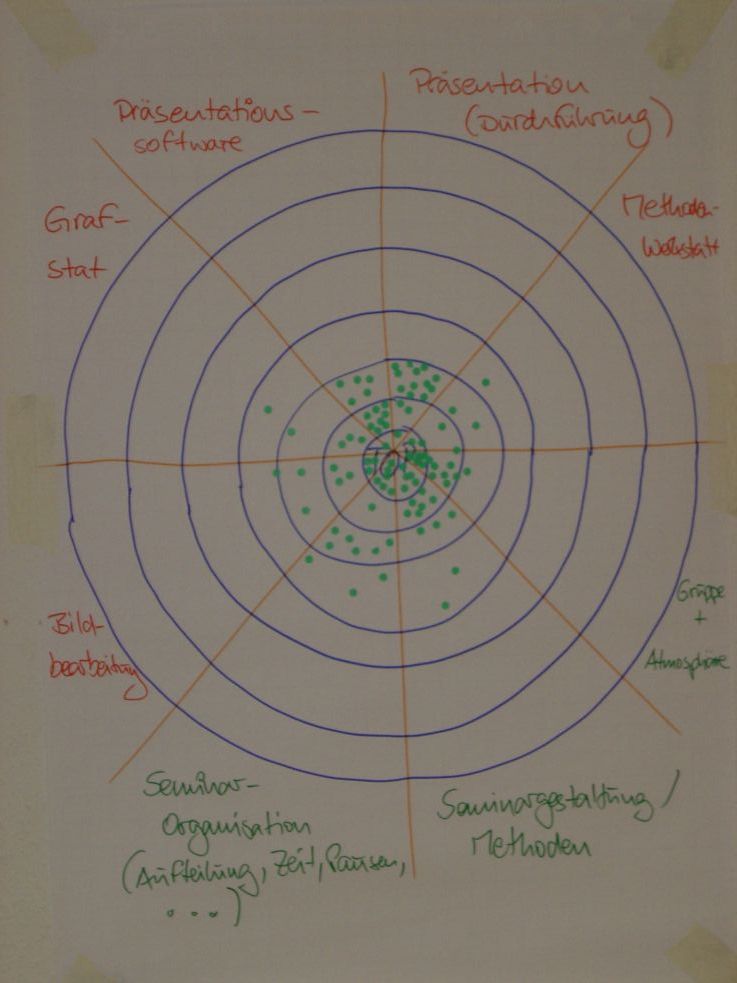 Präsentations-
software
Präsentation
(Durchführung)
Graf-
stat
Methoden-
Werkstatt
Bild-
bearbeitung
Gruppe
+
Atmosphäre
Seminar-
Organisation
(Aufteilung, Zeit, Pausen,
...)
Seminargestaltung /
Methoden